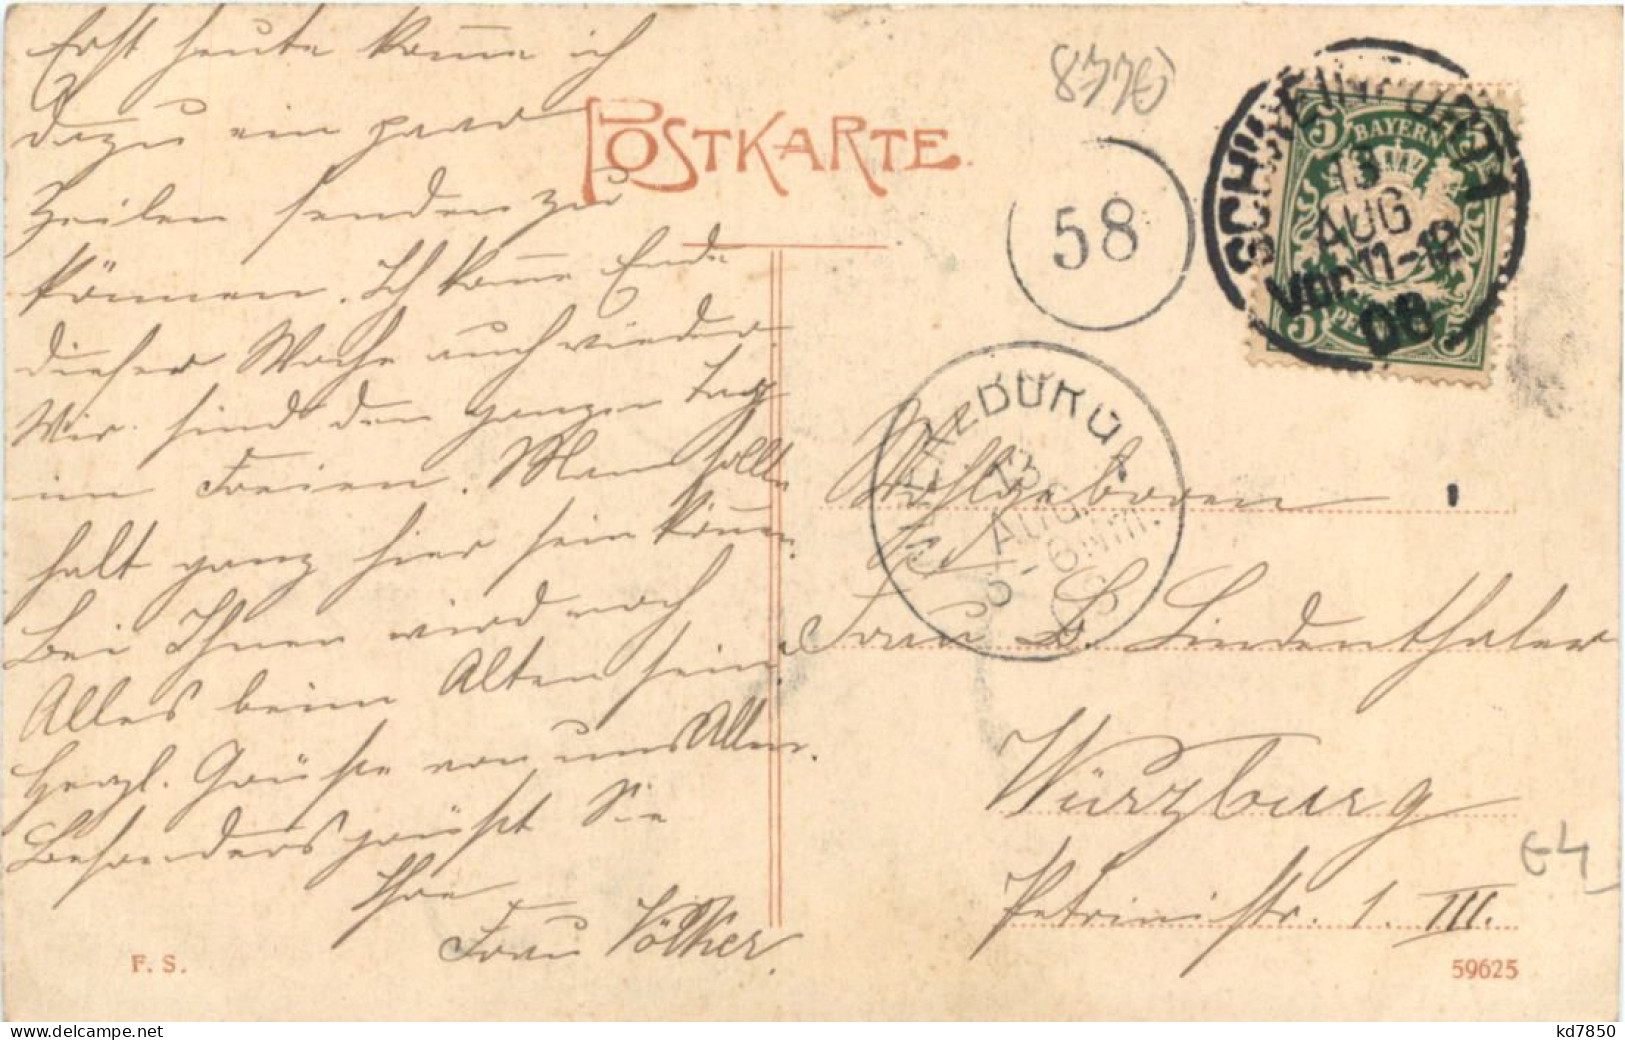 Erst heute komme ich
dazu ein paar
Zeilen senden zu
können. Ich komme Ende
dieser Woche auch wieder.
Wir sind den ganzen Tag
im Freien. Man sollte
halt ganz hier sein können.
Bei Ihnen wird noch
Alles beim Alten sein.
Herzl. Grüße von uns Allen.
Besonders grüßt Sie
Ihre
Frau Völker.
F. S.
POSTKARTE.
58
SCHWEINFURT 1
13
AUG
Vor 11-12
08
BAYERN
5 5
5 5
WÜRZBURG 1.
13
AUG.
5-6 Nm.
08
Wohlgeboren
Frau B. Lindenthaler
Würzburg
Petrinistr. 1. III.
64
59625
kd7850